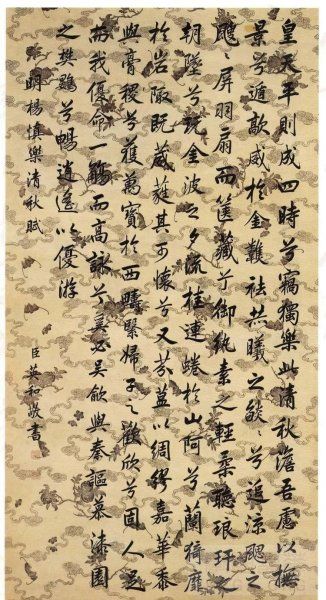 皇天平則成四時兮竊獨樂此清秋澹吾慮以撫
景兮遁歊威於金
羲之
兮返涼颸之
颸颸屏羽扇而篋藏兮御紈素之輕柔聽琅玕之
朝墜兮玩金波之夕流桂連蜷於山阿兮蘭猗靡
於岩陬既葳蕤其可懷兮又芬
以綢繆嘉華黍
與膏稷兮穫萬寶於西疇緊婦子之歡欣兮固人足
而我優命一觴而高詠兮奚必吳歈與秦謳慕漆園
之樊鷃兮暢逍遙以優游
明楊慎樂清秋賦
臣英和敬書